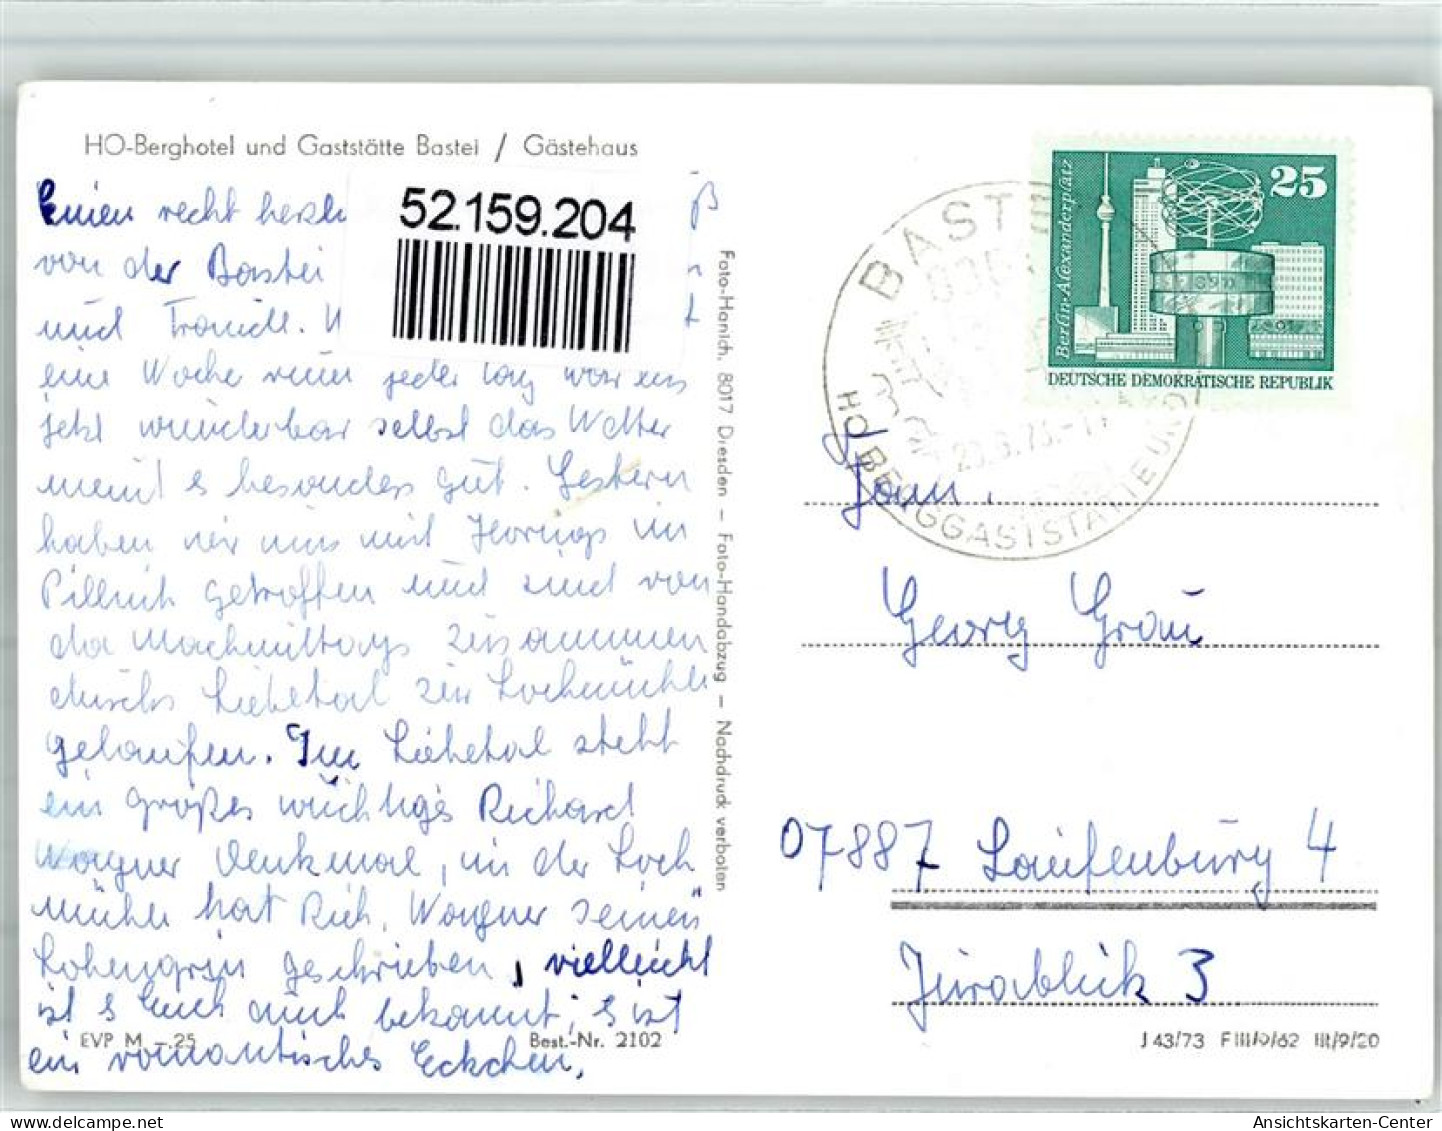 HO-Berghotel und Gaststätte Bastei / Gästehaus
52.159.204
Einen recht herzli ß
von der Bastei
und Traudl. W t
eine Woche nun jeder Tag war uns
jetzt wunderbar selbst das Wetter
meint s besonders gut. Gestern
haben wir uns mit Hornigs in
Pillnitz getroffen und sind von
da Nachmittags zusammen
durchs Liebetal zur Lochmühle
gelaufen. Im Liebetal steht
ein großes wuchtiges Richard
Wagner Denkmal, in der Loch
mühle hat Rich. Wagner seinen
Lohengrin geschrieben, vielleicht
ist s Euch auch bekannt; s ist
ein romantisches Eckchen.
EVP M -.25 Best.-Nr. 2102
Foto-Hanich, 8017 Dresden – Foto-Handabzug – Nachdruck verboten
BASTEI
HO BERGGASTSTÄTTE UND
Berlin-Alexanderplatz
25
DEUTSCHE DEMOKRATISCHE REPUBLIK
Fam.
Georg Grau
07887 Laufenburg 4
Jurablick 3
J 43/73 F III/9/62 III/9/20
Ansichtskarten-Center